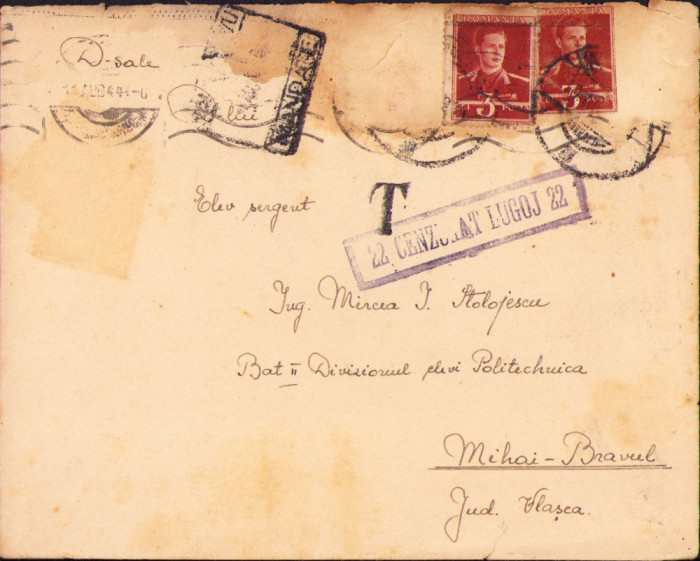 D-sale
D-lui
MANDATE
ROMANIA ROMANIA
3 3
T
22 CENZURAT LUGOJ 22
Elev sergent
Ing. Mircea I. Stolojescu
Bat II Divizionul elevi Politechnica
Mihai-Bravul
Jud. Vlaşca.